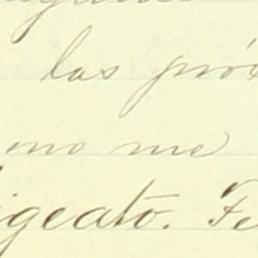 las próx
no me
igeato. Fe